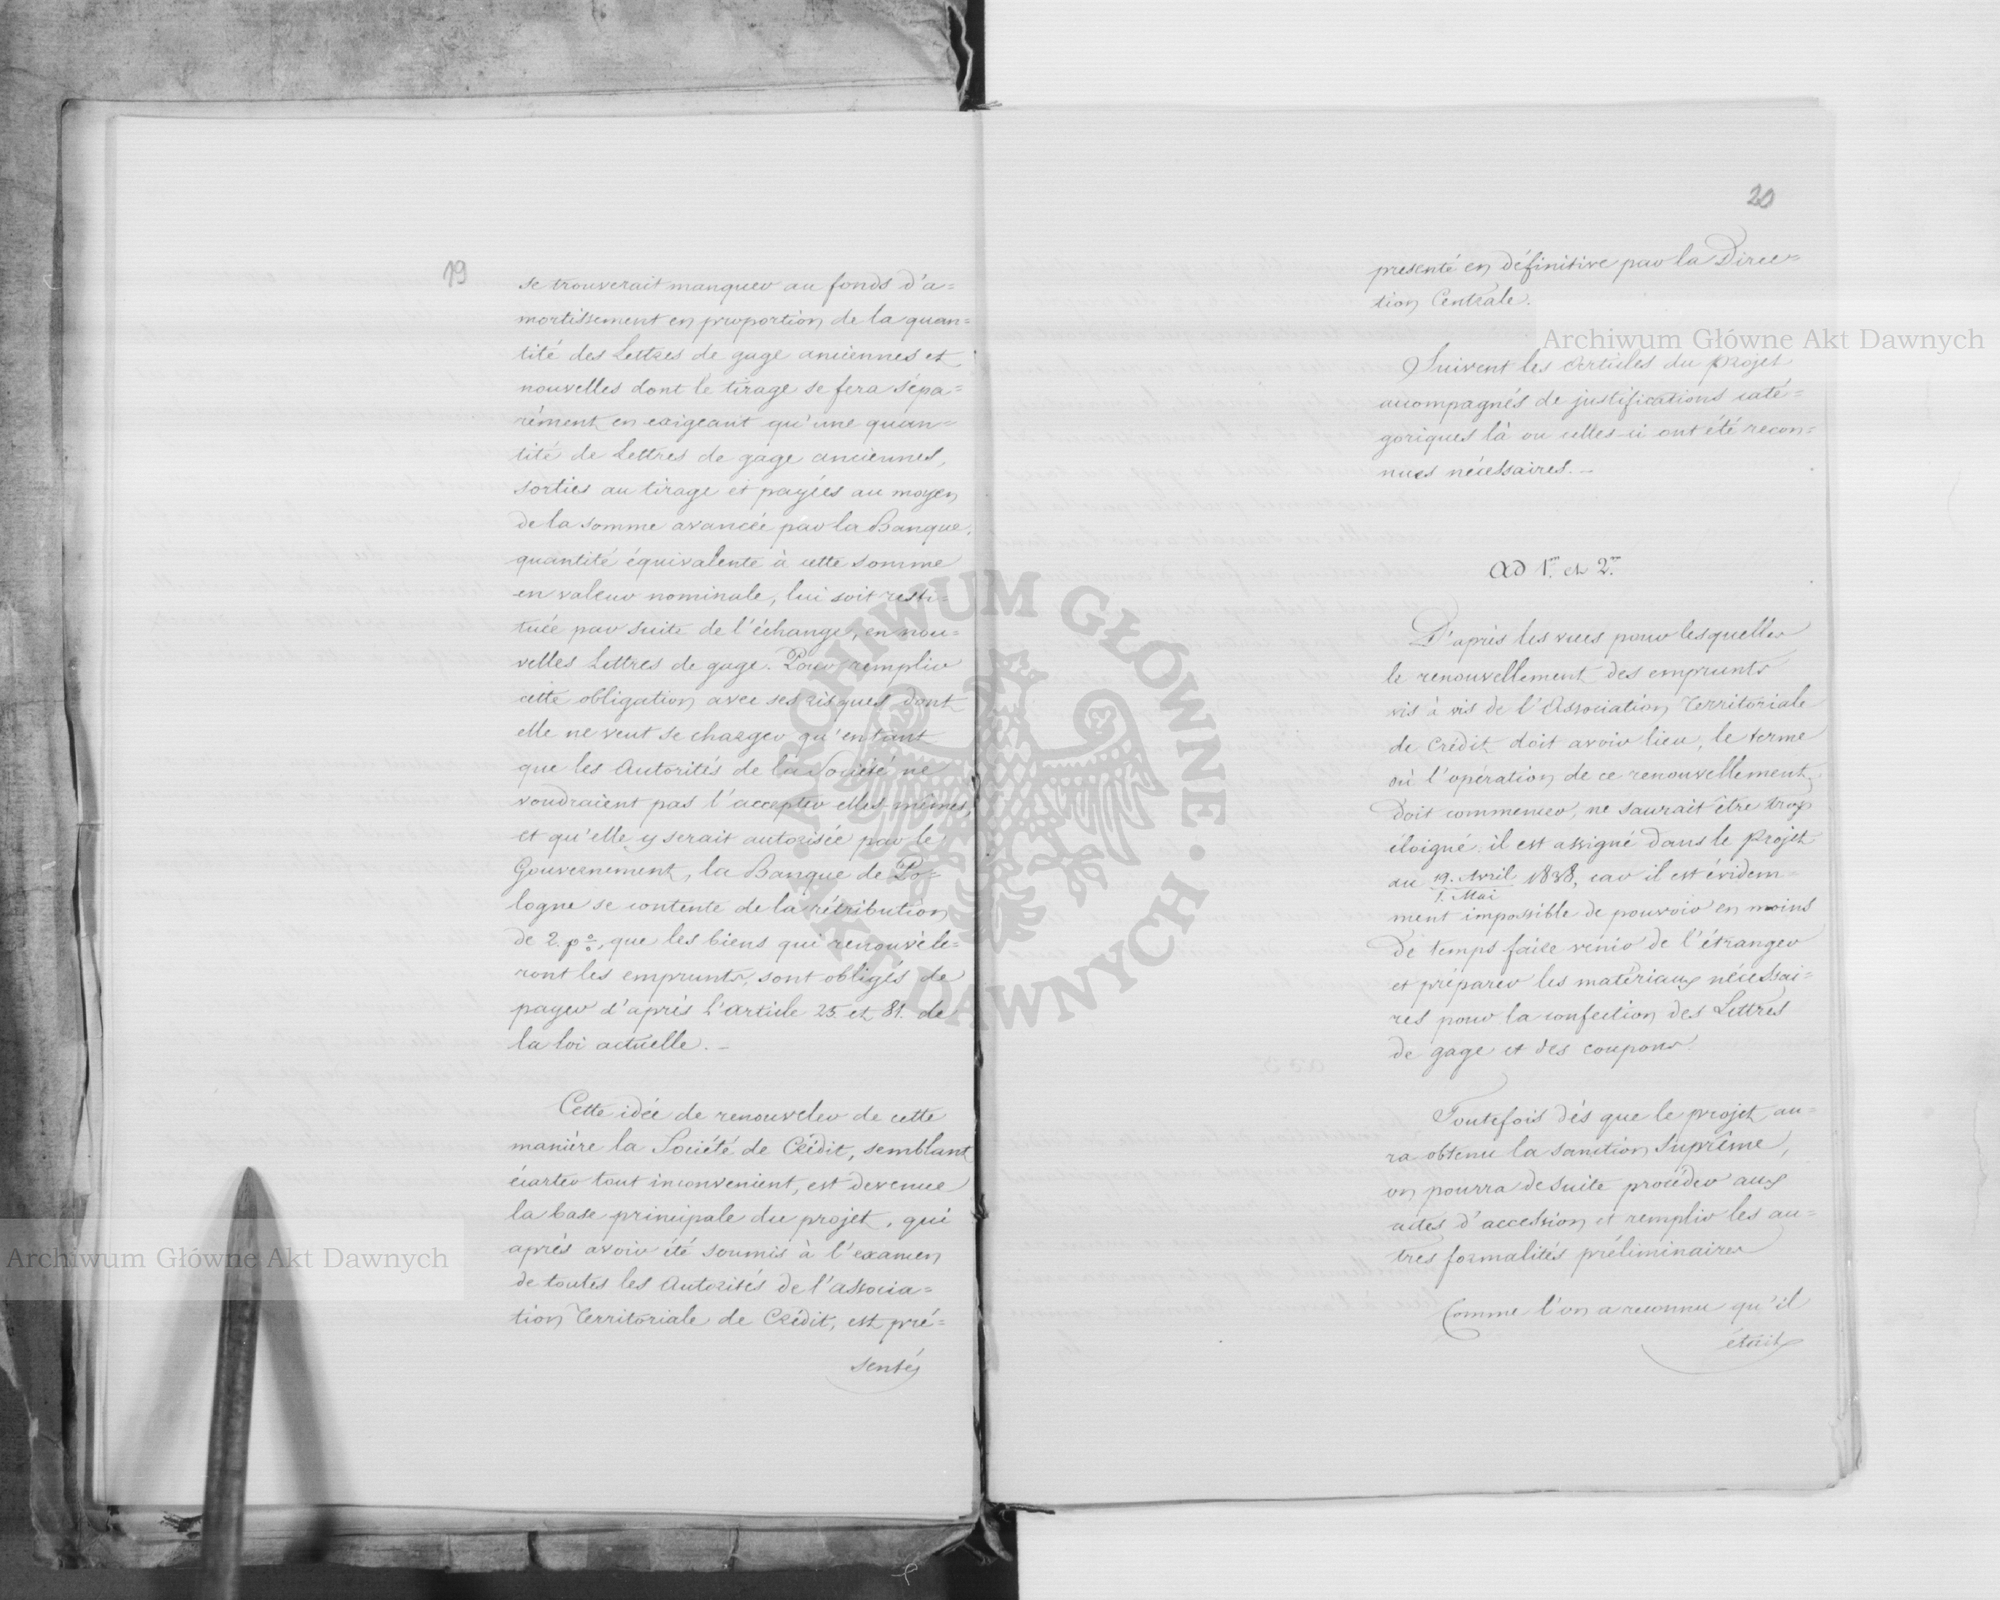 19
se trouverait manquer au fonds d'a=
mortissement en proportion de la quan=
tité des Lettres de gage anciennes et
nouvelles dont le tirage se fera sépa=
rément en exigeant qu'une quan=
tité de Lettres de gage anciennes,
sorties au tirage et payées au moyen
de la somme avancée par la Banque,
quantité équivalente à cette somme
en valeur nominale, lui soit resti=
tuée par suite de l'échange, en nou=
velles Lettres de gage. Pour remplir
cette obligation avec ses risques dont
elle ne veut se charger qu'en tant
que les Autorités de la Société ne
voudraient pas l'accepter elles-mêmes,
et qu'elle y serait autorisée par le
Gouvernement, la Banque de Po=
logne se contente de la rétribution
de 2. p%, que les biens qui renouvele=
ront les emprunts, sont obligés de
payer d'après l'article 25. et 81. de
la loi actuelle. _
Cette idée de renouveler de cette
manière la Société de Crédit, semblant
écarter tout inconvenient, est devenue
la base principale du projet, qui
après avoir été soumis à l'examen
de toutes les Autorités de l'associa=
tion Territoriale de Crédit, est pré=
senté
20
présenté en définitive par la Direc=
tion Centrale.
Suivent les Articles du Projet
accompagnés de justifications caté=
goriques là ou celles-ci ont été recon=
nues nécessaires. _
Ad 1m. et 2m.
D'après les vues pour lesquelles
le renouvellement des emprunts
vis à vis de l'Association Territoriale
de Crédit doit avoir lieu, le terme
où l'opération de ce renouvellement
doit commencer, ne saurait être trop
éloigné: il est assigné dans le Projet
au 19. Avril / 1. Mai 1838, car il est évidem=
ment impossible de pouvoir en moins
de temps faire venir de l'étranger
et préparer les matériaux nécessai=
res pour la confection des Lettres
de gage et des coupons.
Toutefois dès que le projet au=
ra obtenu la sanction Suprême,
on pourra de suite procéder aux
actes d'accession et remplir les au=
tres formalités préliminaires
Comme l'on a reconnu qu'il
était
Archiwum Główne Akt Dawnych
Archiwum Główne Akt Dawnych
ARCHIWUM GŁÓWNE
• AKT DAWNYCH •